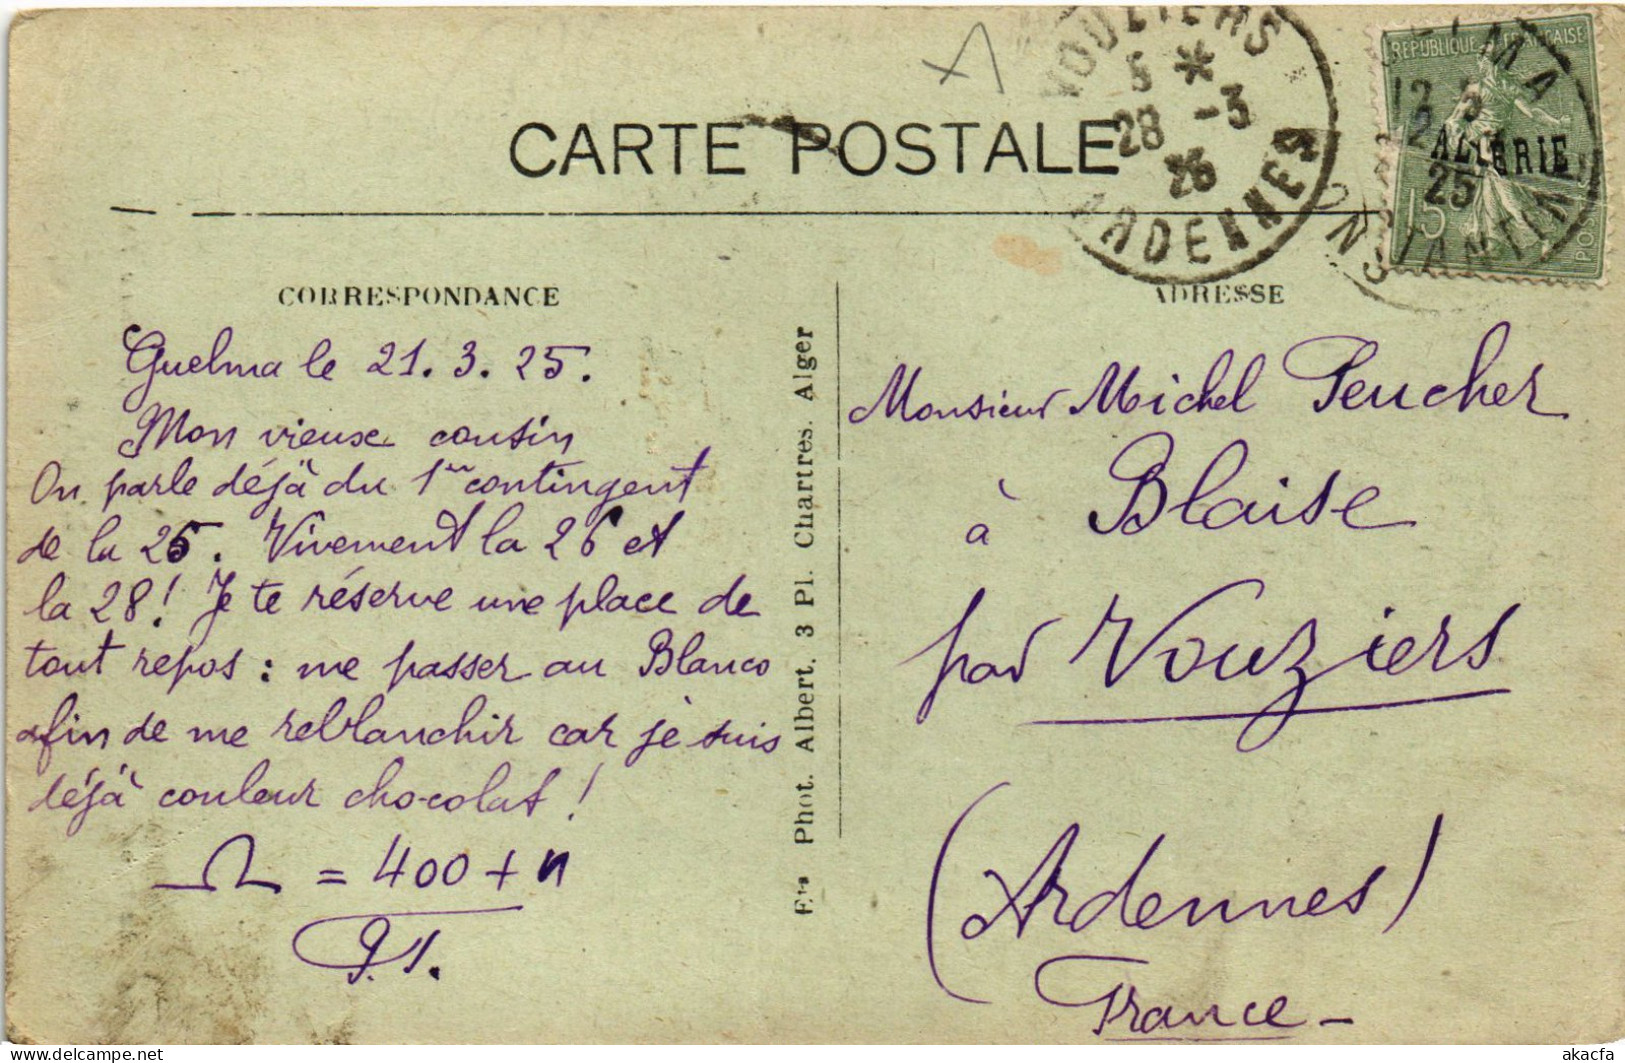 CARTE POSTALE
VOUZIERS
5 *
28 -3
25
ARDENNES
GUELMA
ALGÉRIE
25
CONSTANTINE
RÉPUBLIQUE FRANÇAISE
15
CORRESPONDANCE
Guelma le 21.3.25.
Mon vieux cousin
On parle déjà du 1er contingent
de la 25. Vivement la 26 et
la 28! Je te réserve une place de
tout repos : me passer au Blanco
afin de me reblanchir car je suis
déjà couleur chocolat!
Ω = 400 + n
Phot. Albert. 3 Pl. Chartres. Alger
ADRESSE
Monsieur Michel Peucher
à Blaise
par Vouziers
(Ardennes)
France -
akacfa